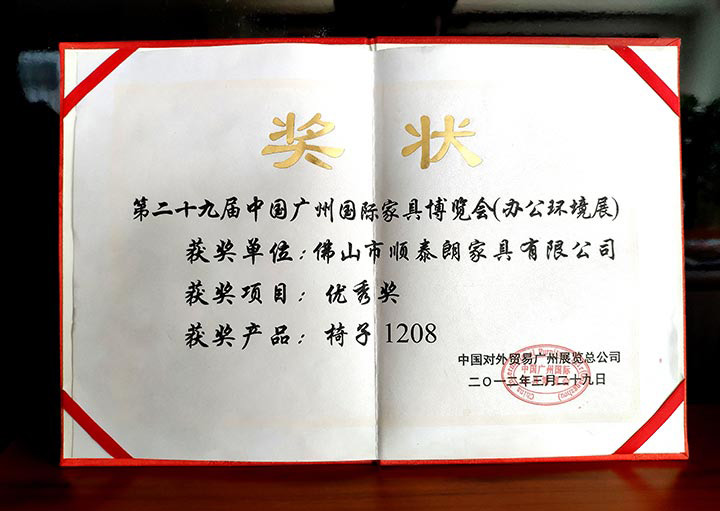 奖状
第二十九届中国广州国际家具博览会(办公环境展)
获奖单位：佛山市顺泰朗家具有限公司
获奖项目：优秀奖
获奖产品：椅子 1208
中国对外贸易广州展览总公司
二〇一二年三月二十九日
中国广州国际